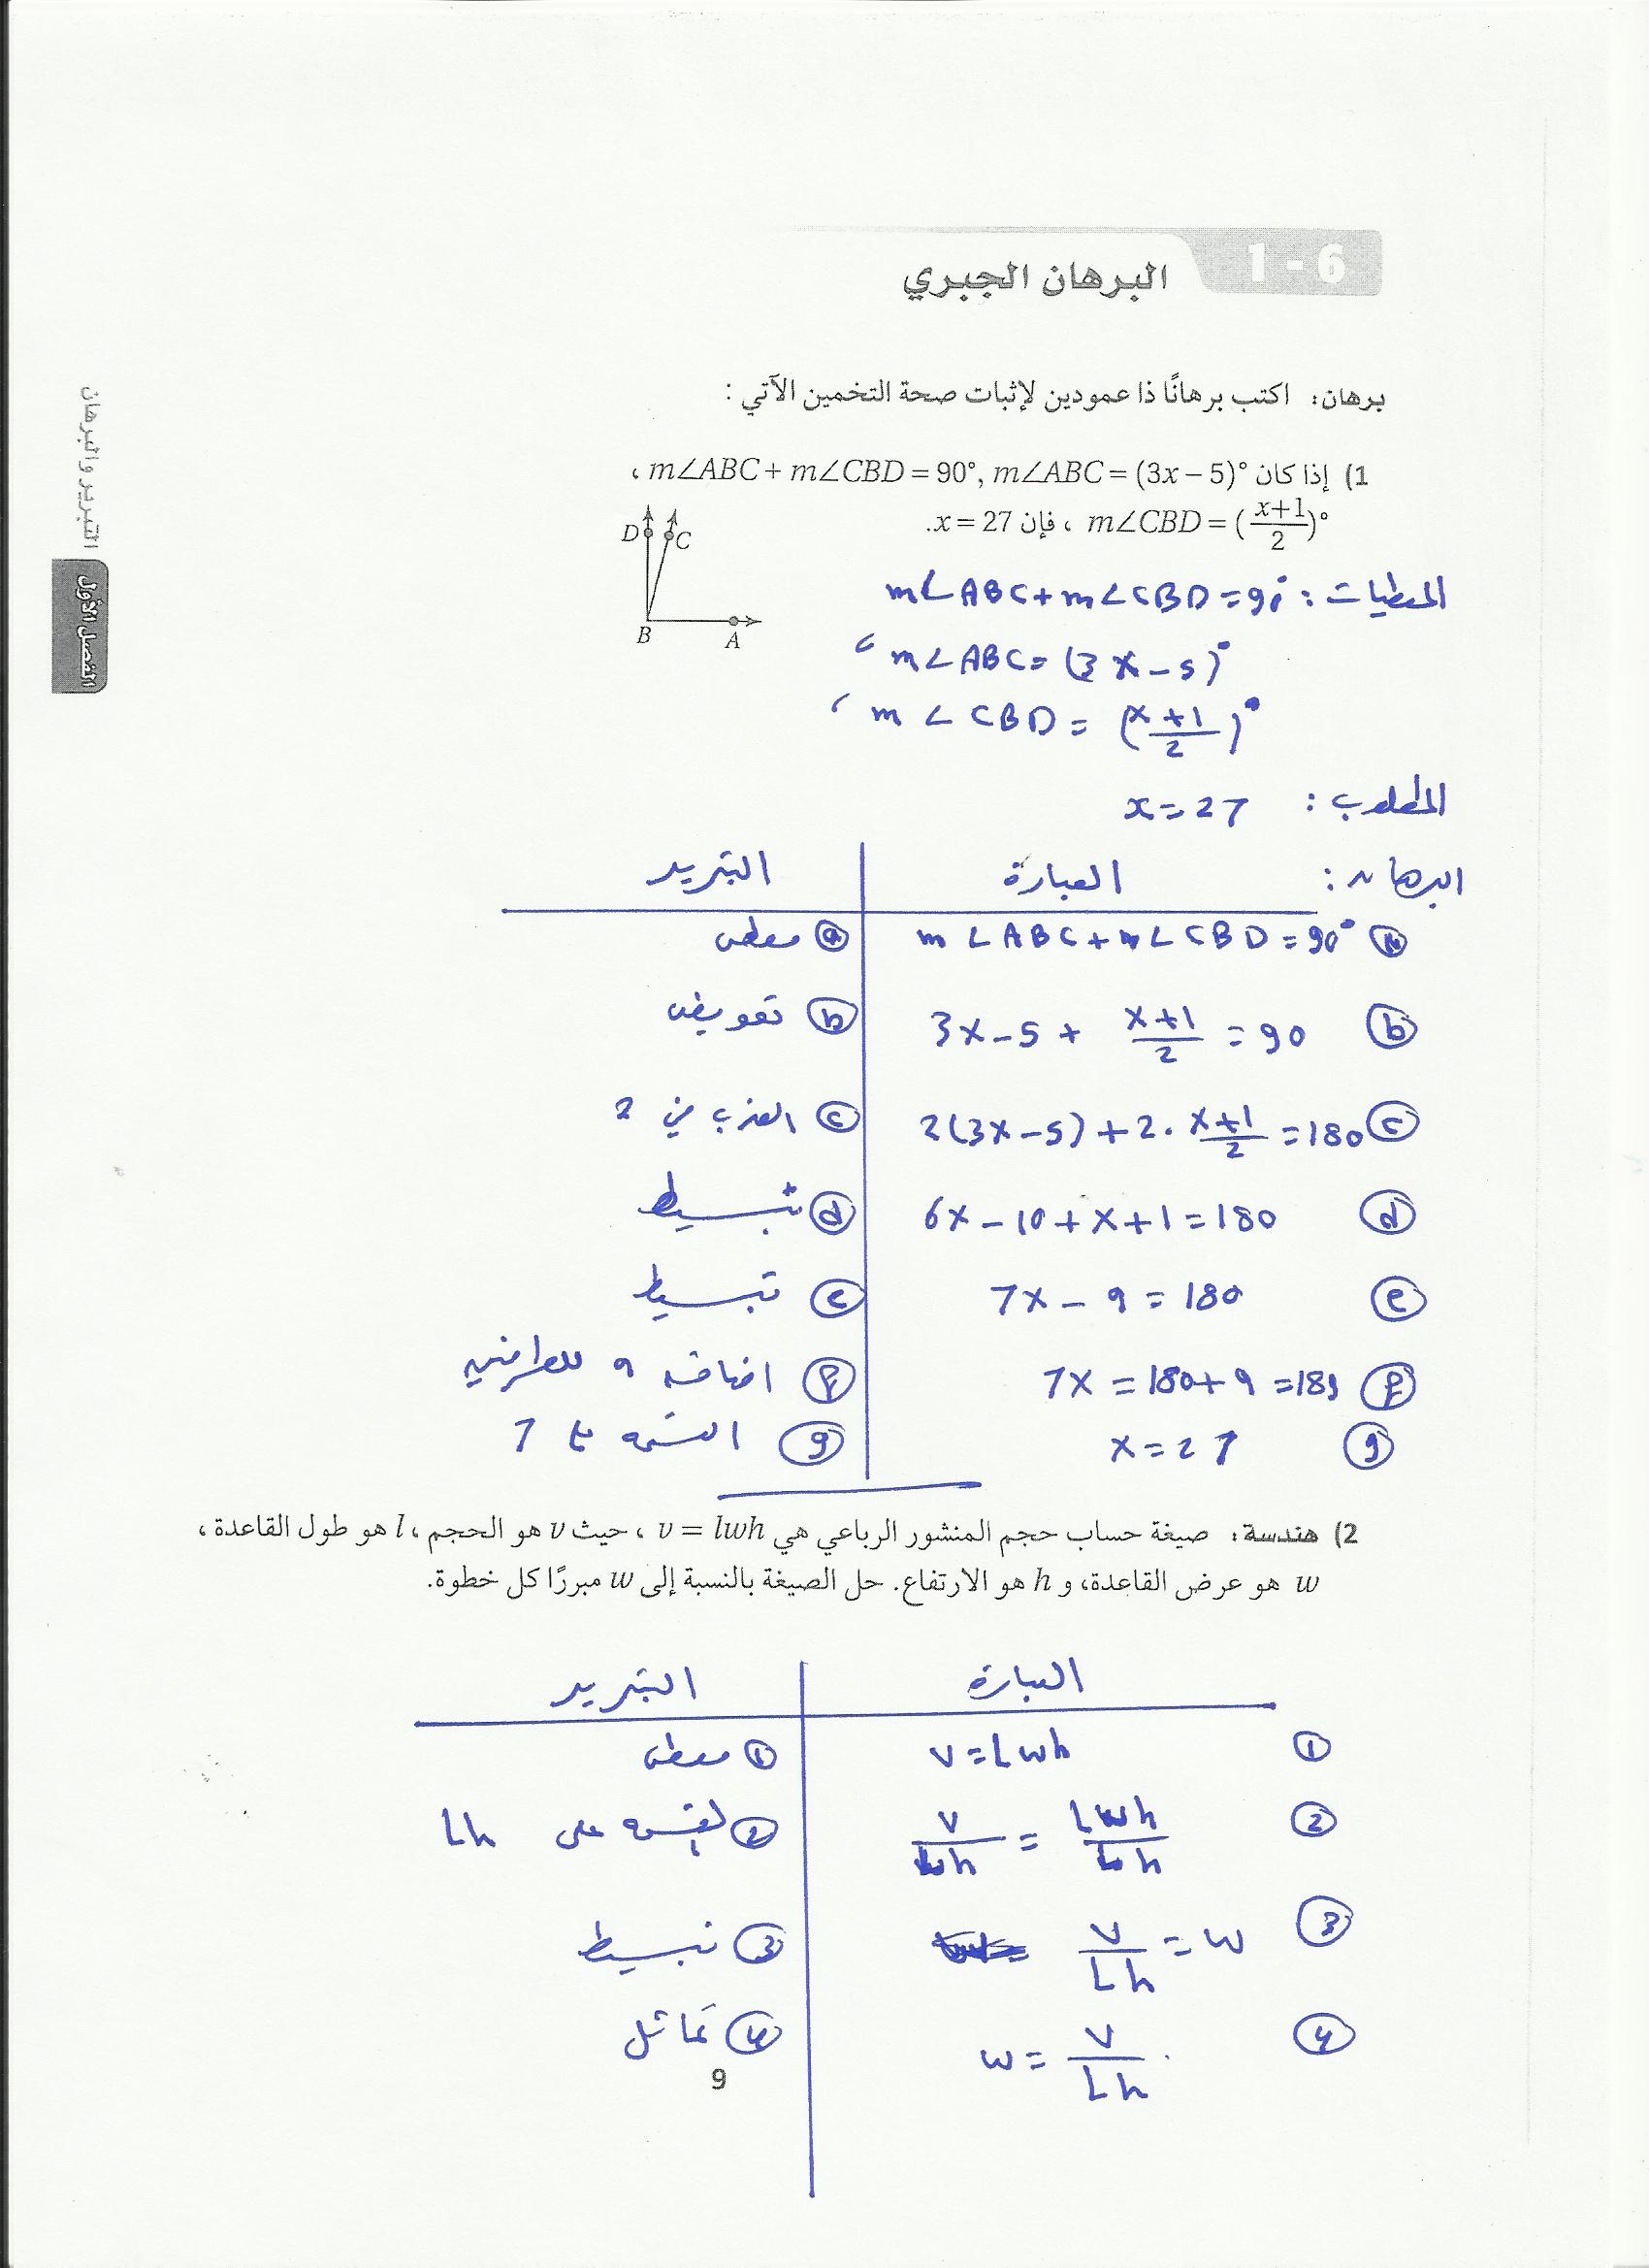 1 - 6
البرهان الجبري
برهان: اكتب برهانًا ذا عمودين لإثبات صحة التخمين الآتي :
1) إذا كان m∠ABC + m∠CBD = 90°, m∠ABC = (3x – 5)° ،
m∠CBD = (x+1/2)° ، فإن x = 27.
D C
B A
المعطيات : m∠ABC + m∠CBD = 90°
m∠ABC = (3x – 5)° ،
m∠CBD = (x+1/2)° ،
المطلوب : x = 27
البرهان : العبارة التبرير
ⓐ m∠ABC + m∠CBD = 90° ⓐ معطى
ⓑ 3x – 5 + x+1/2 = 90 ⓑ تعويض
ⓒ 2(3x – 5) + 2 . x+1/2 = 180 ⓒ الضرب في 2
ⓓ 6x – 10 + x + 1 = 180 ⓓ تبسيط
ⓔ 7x – 9 = 180 ⓔ تبسيط
ⓕ 7x = 180 + 9 = 189 ⓕ اضافة 9 للطرفين
ⓖ x = 27 ⓖ القسمة على 7
2) هندسة: صيغة حساب حجم المنشور الرباعي هي v = lwh ، حيث v هو الحجم ، l هو طول القاعدة ،
w هو عرض القاعدة، و h هو الارتفاع. حل الصيغة بالنسبة إلى w مبررًا كل خطوة.
العبارة التبرير
① v = Lwh ① معطى
② v/Lh = Lwh/Lh ② القسمة على Lh
③ v/Lh = w ③ تبسيط
④ w = v/Lh . ④ تماثل
9
الفصل الأول التبرير والبرهان